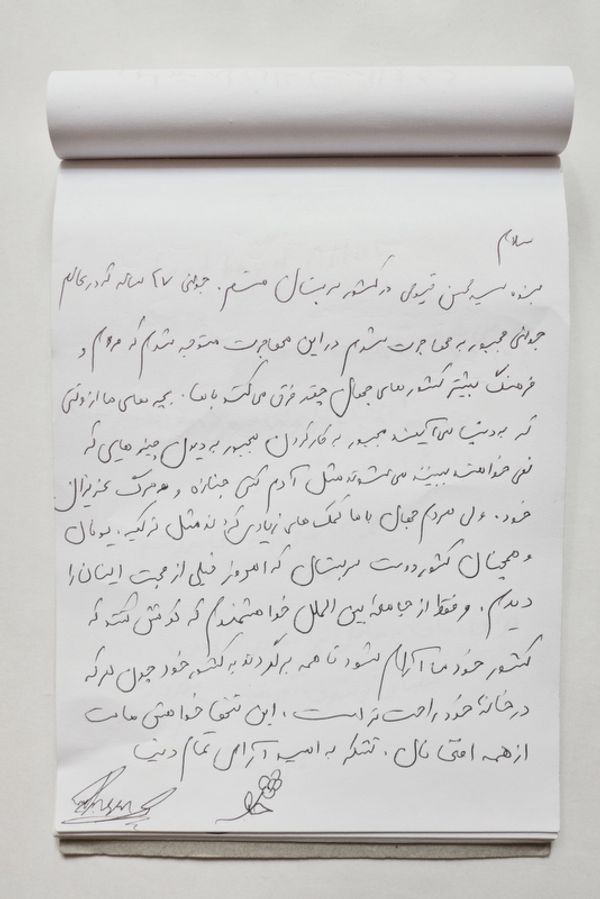 سلام
بنده سید محسن هستم در کشور صربستان. جوانی ۲۷ ساله که در عالم
جوانی مجبور به مهاجرت شدم در این مهاجرت متوجه شدم که مردم و
فرهنگ بیشتر کشور های جهان چقدر فرق می‌کند با ما. بچه های ما از وقتی
که به دنیا می‌آیند مجبور به کار کردن مجبور به دیدن چیز هایی که
نمی خواهند ببینند می‌شوند مثل آدم کشی جنازه و مرگ عزیزان
خود. ولی مردم جهان با ما کمک های زیادی کردند مثل ترکیه. یونان
و همچنان کشور دوست صربستان که امروز خیلی از محبت ایشان را
دیدم. و فقط از جامعه بین الملل خواهشمندم که کوشش کنند که
کشور خود ما آرام شود تا همه برگردند به کشور خود چون هر که
در خانهٔ خود راحت تر است. این تنها خواهش ماست
از همه تان. تشکر به امید آرامی تمام دنیا